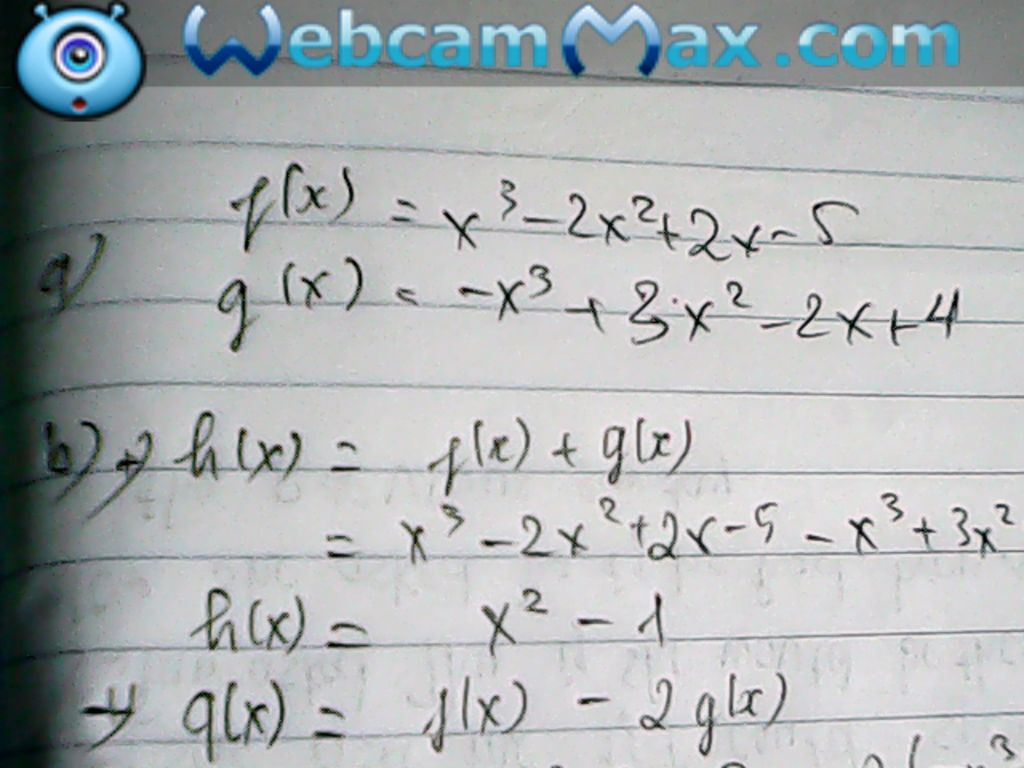 WebcamMax.com
f(x) = x³ - 2x² + 2x - 5
a)
g(x) = -x³ + 3x² - 2x + 4
b) +) h(x) = f(x) + g(x)
= x³ - 2x² + 2x - 5 - x³ + 3x²
h(x) = x² - 1
+) q(x) = f(x) - 2g(x)